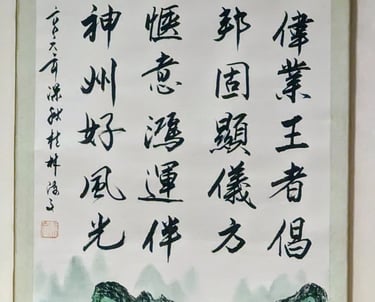 偉業王者倡
邦固顯儀方
愜意鴻運伴
神州好風光
深秋桂林